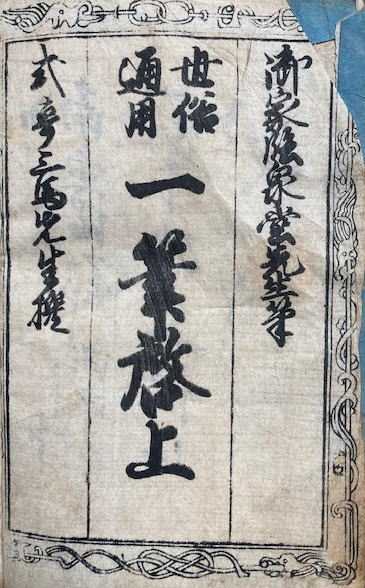 御家臨泉堂先生筆
世俗
通用
一筆啓上
式亭三馬先生撰